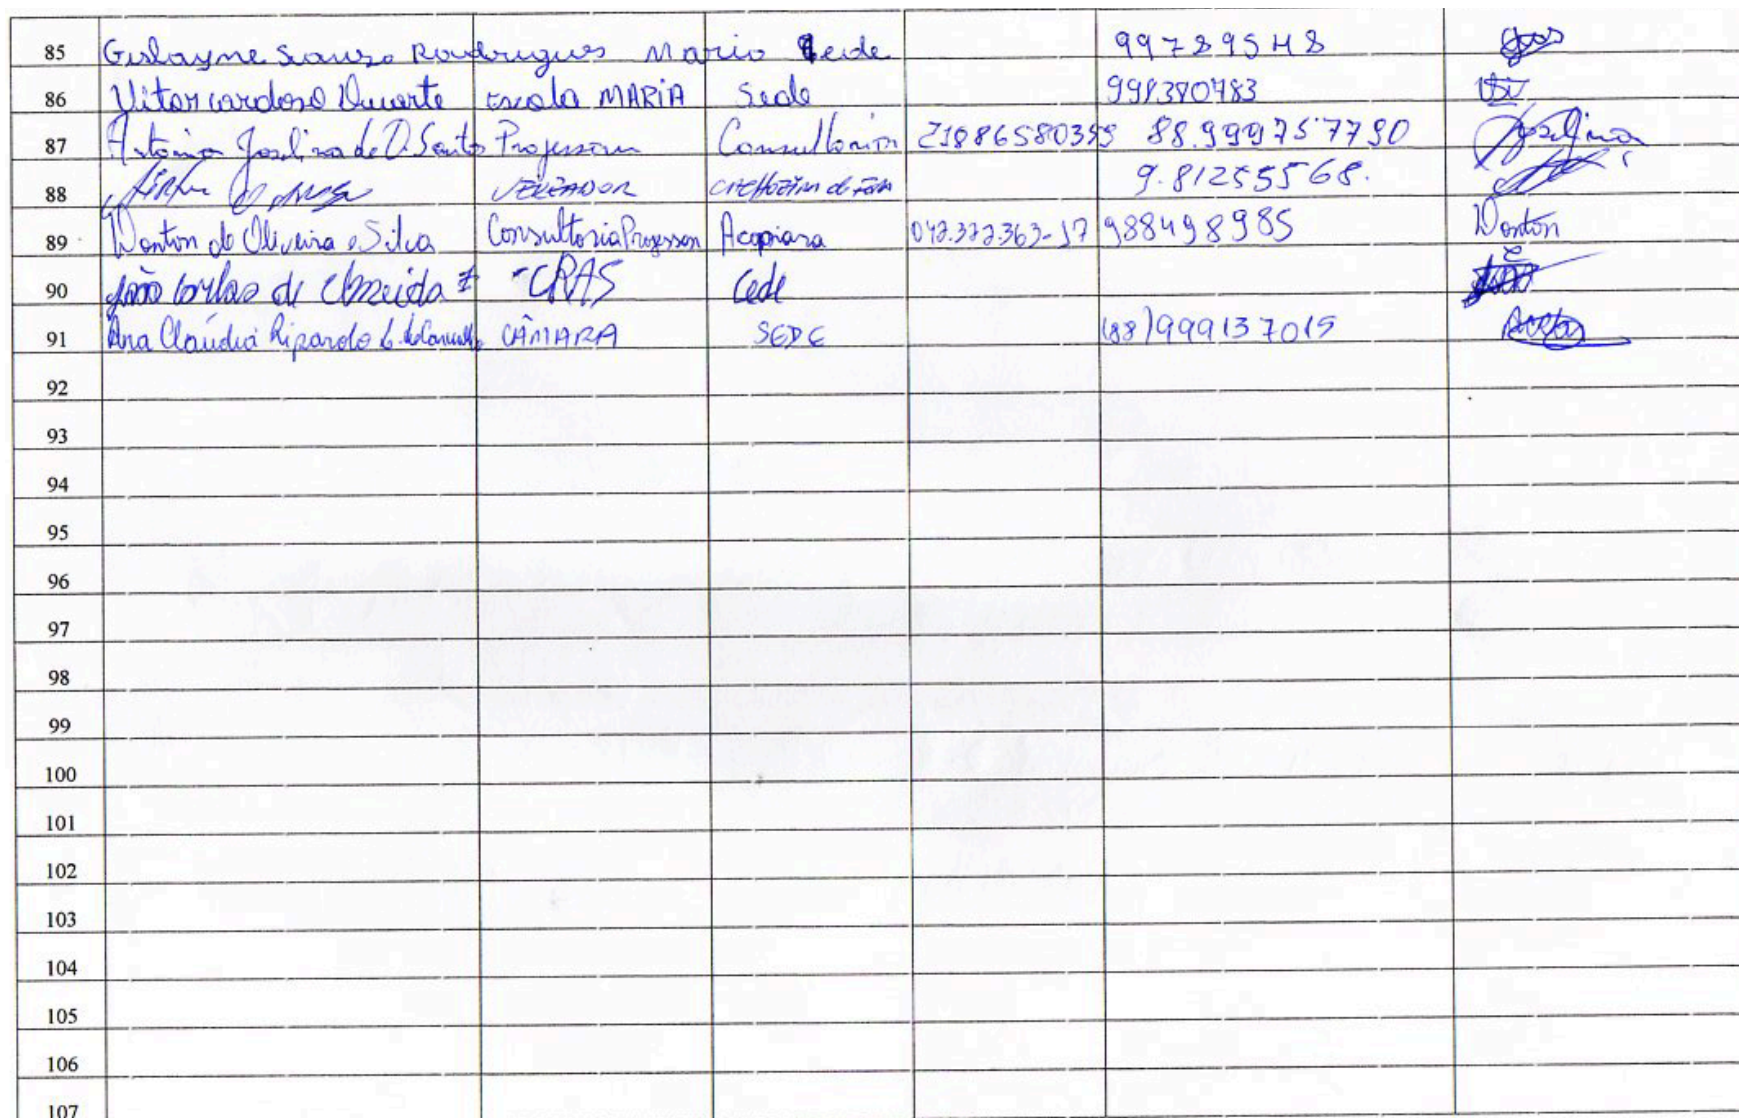 85 Gislayne Souza Rodrigues Maria Sede 99789548
86 Vitor cardoso Duarte Escola MARIA Sede 998390483
87 Antonia Joselina de D. Santo Professora Consultoria 21886580359 88.999757790 Joselina
88 VEREADOR 9.81255568.
89 Wenton de Oliveira e Silva Consultoria Professor Acopiara 042.372.363-17 988498985 Wenton
90 João Carlos de Almeida CRAS Cede
91 Ana Claudia Ripardo CÂMARA SEDE (88)999137015
92
93
94
95
96
97
98
99
100
101
102
103
104
105
106
107